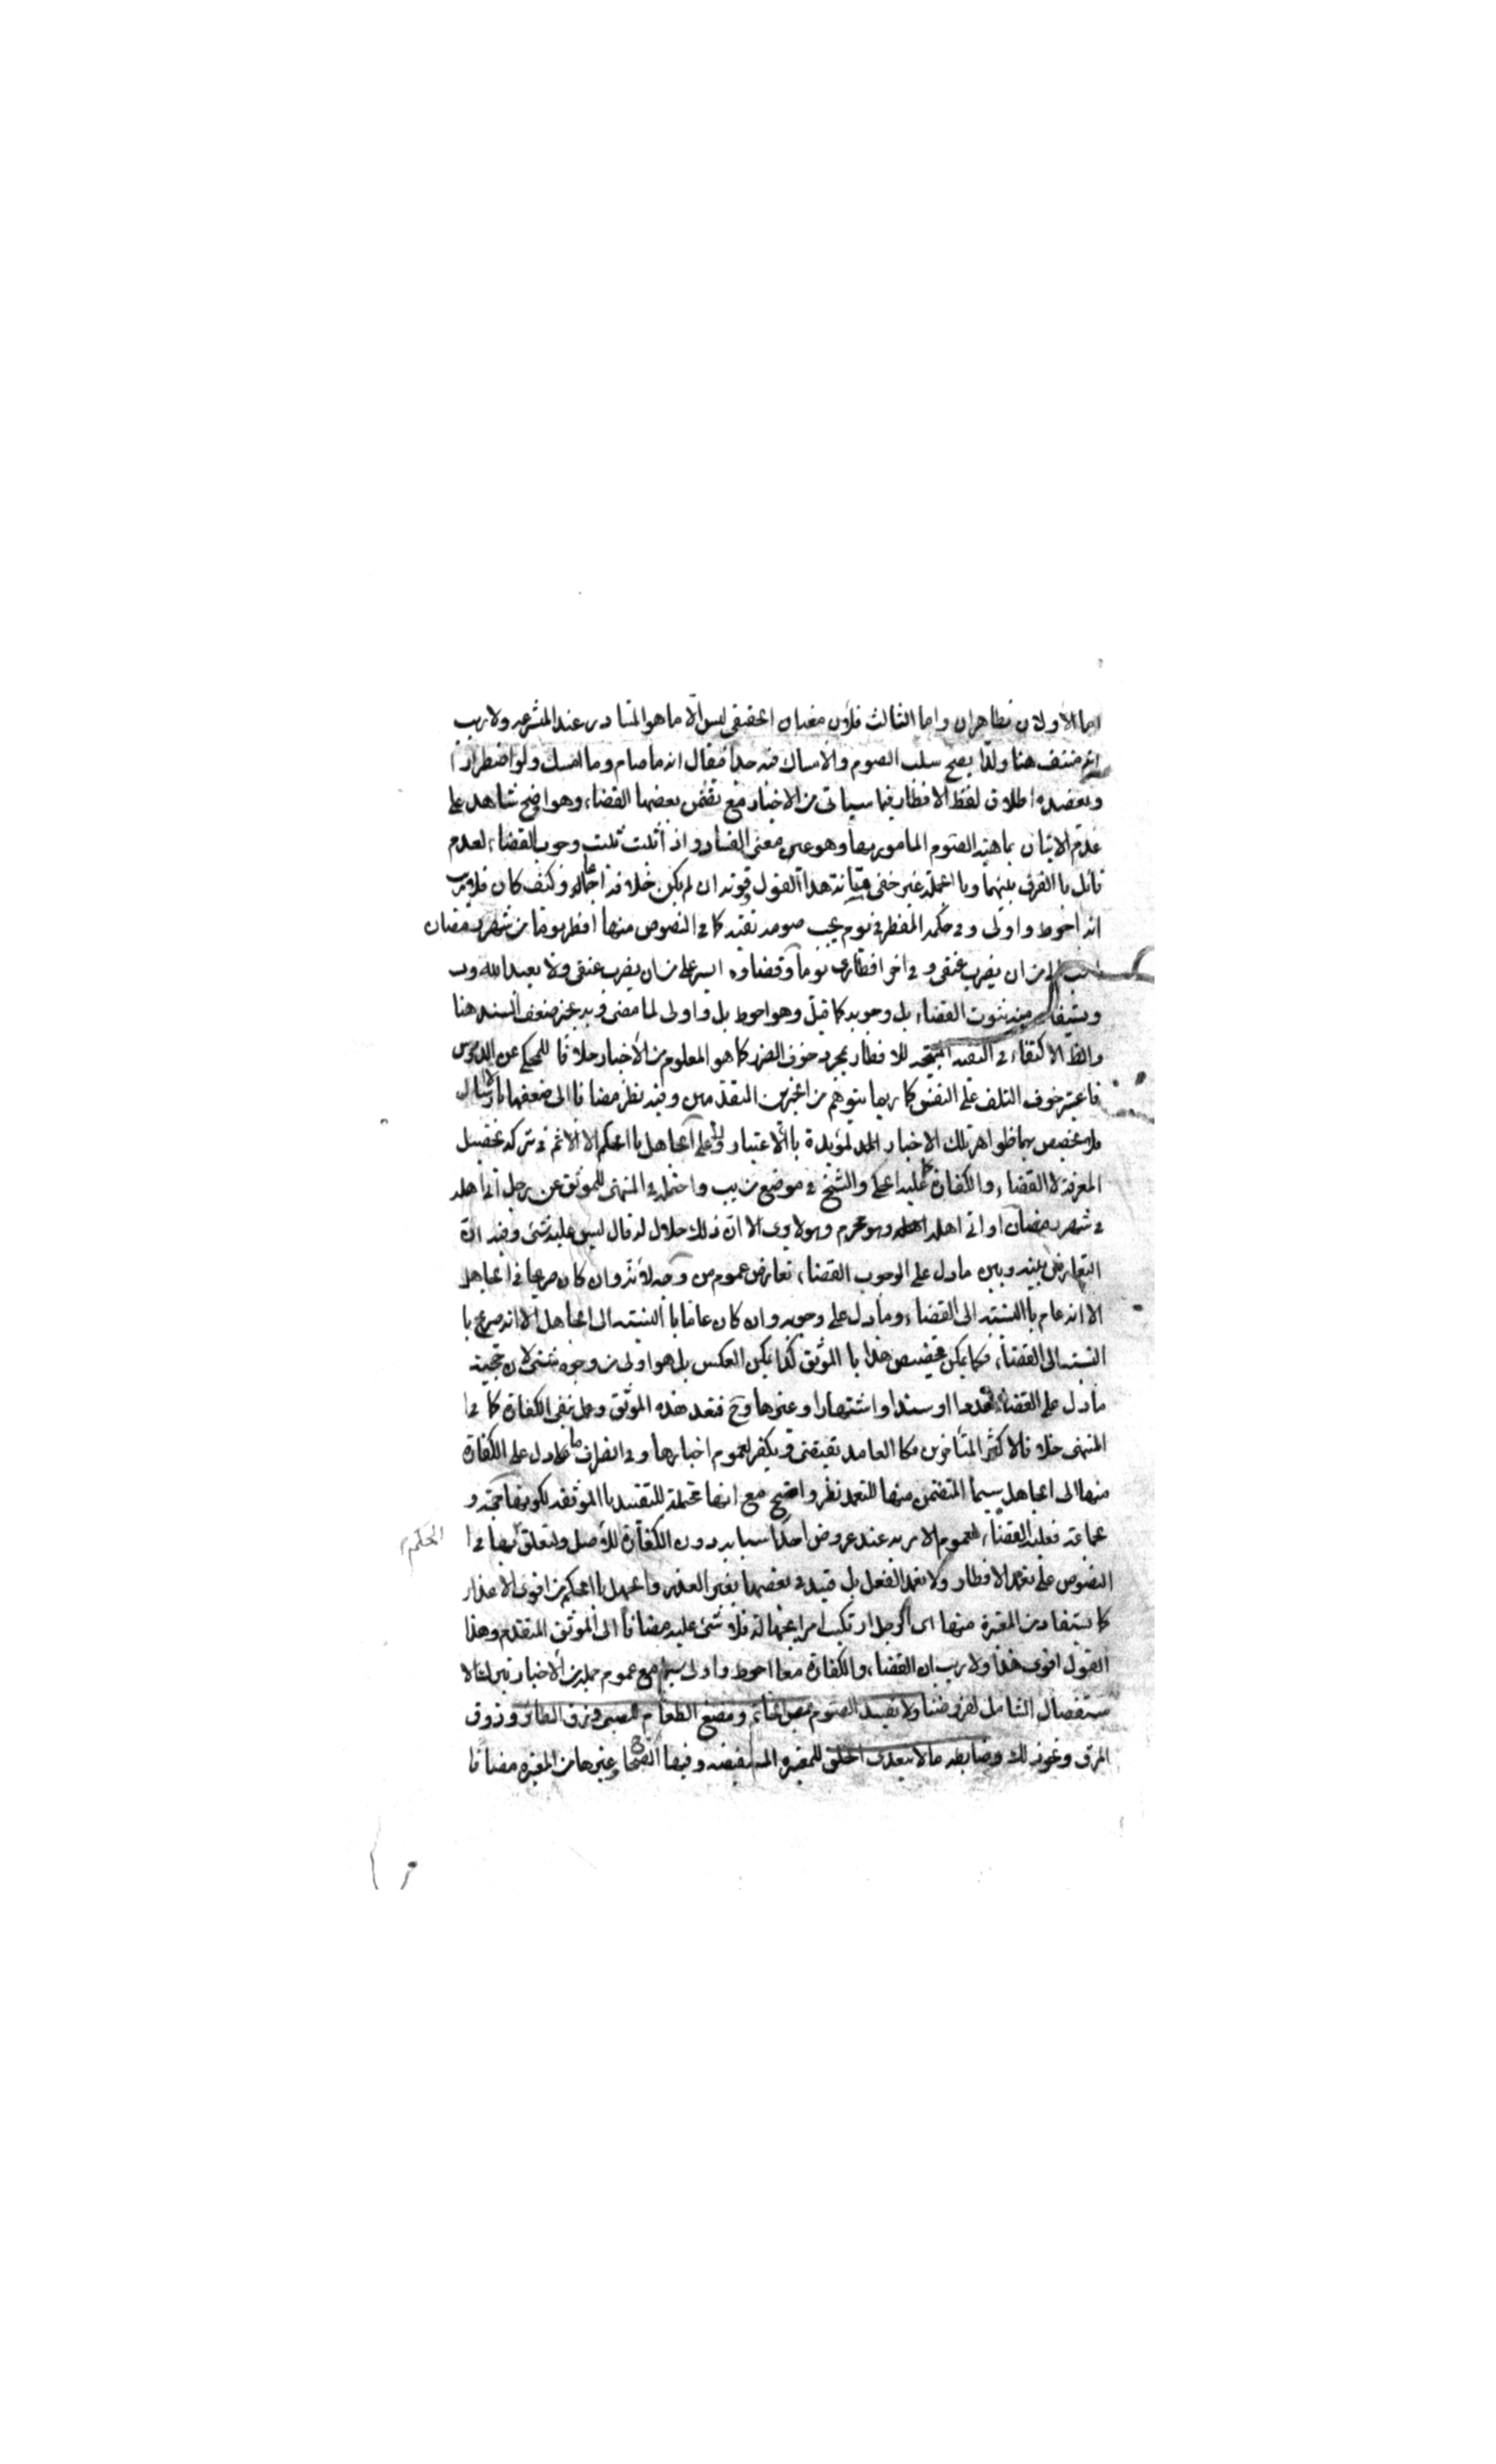 اما الاولان فظاهران واما الثالث فلان معناه الحقيقى ليس الا ما هو المتبادر عند المتشرعه ولا ريب
انه منتف هنا ولذا يصح سلب الصوم والامساك فيه حقا فيقال انه ما صام وما امسك ولو اضطرارا
ويعضده اطلاق لفظ الافطار فيما سياتى من الاخبار مع تضمن بعضها القضاء وهو اوضح شاهد على
عدم الاتيان بماهية الصوم المامور بها وهو عين معنى الفساد واذا ثبت ثبت وجوب القضاء لعدم
قائل بالفرق بينهما وبالجملة غير خفى متانة هذا القول وقوته ان لم يكن خلافه اجماعا وكيف كان فلا ريب
انه احوط واولى وفى حكمه المفطر فى يوم يجب صومه تقية كما فى النصوص منها افطر يوما من شهر رمضان
احب الى من ان يضرب عنقى وفى اخر افطارى يوما وقضاؤه ايسر على من ان يضرب عنقى ولا يعبد الله
ويستفاد منه ثبوت القضاء بل وجوبه كما قيل وهو احوط بل واولى لما مضى وبه يجبر ضعف السند هنا
والظ الاكتفاء فى التقية المبيحة للافطار بمجرد خوف الضرر كما هو المعلوم من الاخبار خلافا للمحكى عن الدروس
فاعتبر خوف التلف على النفس كما ربما يتوهم من الخبرين المتقدمين وفيه نظر مضافا الى ضعفهما بالارسال
فلا يخصص بهما ظواهر تلك الاخبار المؤيدة بالاعتبار ولا على الجاهل بالحكم الا الاثم فى تركه تحصيل
المعرفة لا القضاء والكفارة عليه الحلى والشيخ فى موضع من يب واحتمله فى المنتهى للموثق عن رجل اتى اهله
فى شهر رمضان او اتى اهله وهو محرم وهو لا يرى الا ان ذلك حلال له قال ليس عليه شئ وفيه ان
التعارض بينه وبين ما دل على الوجوب القضاء تعارض عموم من وجه لانه وان كان صريحا فى الجاهل
الا انه عام بالنسبة الى القضاء وما دل على وجوبه وان كان عاما بالنسبة الى الجاهل الا انه صريح با
النسبة الى القضاء فكما يمكن تخصيص هذا بالموثق كذا يمكن العكس بل هو اولى من وجوه شتى لارجحية
ما دل على القضاء عددا او سندا واشتهارا وغيرها وح فتعد هذه الموثق وهل نفى الكفارة كما فى
المنتهى خلافا لاكثر المتاخرين فكا العامد يقضى ويكفر لعموم اخبارها وفى انصراف ما دل على الكفارة
منها الى الجاهل سيما المتضمن منها للتعمد نظر واضح مع انها محتملة للتقييد بالموثقه لكونها حجة و
جماعة فعليه القضاء لعموم الامر به عند عروض احد اسبابه دون الكفارة للاصل ولتعلق ها فى
الحكم
النصوص على تعمد الافطار ولا تعمد الفعل بل قيد فى بعضها بغير العذر والجهل بالحكم من اقوى الاعذار
كما يستفاد من المعتبرة منها اى رجل ارتكب امرا بجهالة فلا شئ عليه مضافا الى الموثق المتقدم وهذا
القول اقوى هذا ولا ريب ان القضاء والكفارة معا احوط واولى سيما مع عموم جملة من الاخبار بترك الا
ستفصال الشامل لمفروضنا ولا يفسد الصوم بمص الخاتم ومضغ الطعام للصبى وزق الطائر وذوق
المرق ونحو ذلك وضابطه ما لا يتعدى الحلق للمعتبرة المستفيضه وفيها الصحاح وغيرها من المعتبره مضافا